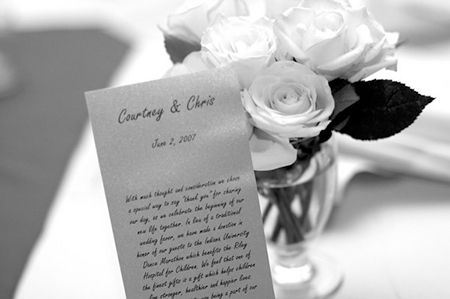 Courtney & Chris
June 2, 2007
With much thought and consideration we chose
a special way to say "thank you" for sharing
our day, as we celebrate the beginning of our
new life together. In lieu of a traditional
wedding favor, we have made a donation in
honor of our guests to the Indiana University
Dance Marathon which benefits the Riley
Hospital for Children. We feel that one of
the finest gifts is a gift which helps children
live stronger, healthier and happier lives.
being a part of our